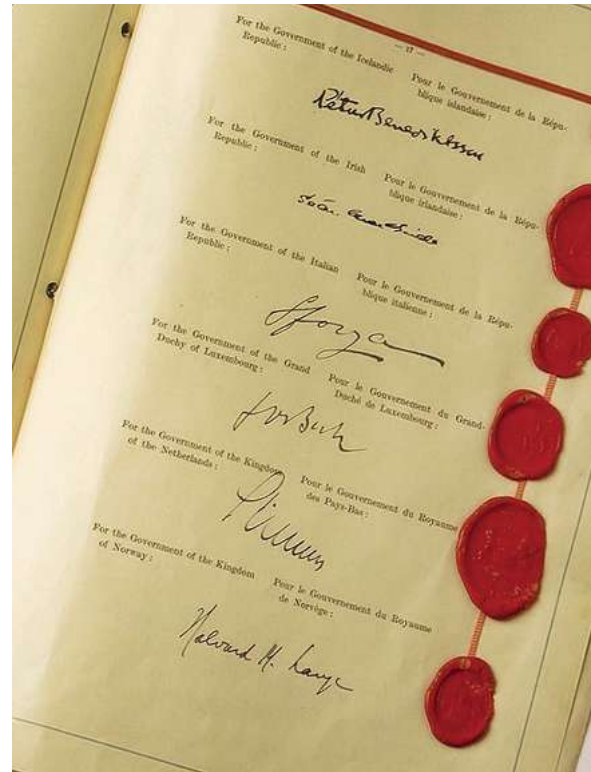 — 17 —
For the Government of the Icelandic
Republic :
Pour le Gouvernement de la Répu-
blique islandaise :
Pétur Benediktsson
For the Government of the Irish
Republic :
Pour le Gouvernement de la Répu-
blique irlandaise :
For the Government of the Italian
Republic :
Pour le Gouvernement de la Répu-
blique italienne :
Sforza
For the Government of the Grand
Duchy of Luxembourg :
Pour le Gouvernement du Grand-
Duché de Luxembourg :
For the Government of the Kingdom
of the Netherlands :
Pour le Gouvernement du Royaume
des Pays-Bas :
For the Government of the Kingdom
of Norway :
Pour le Gouvernement du Royaume
de Norvège :
Halvard M. Lange